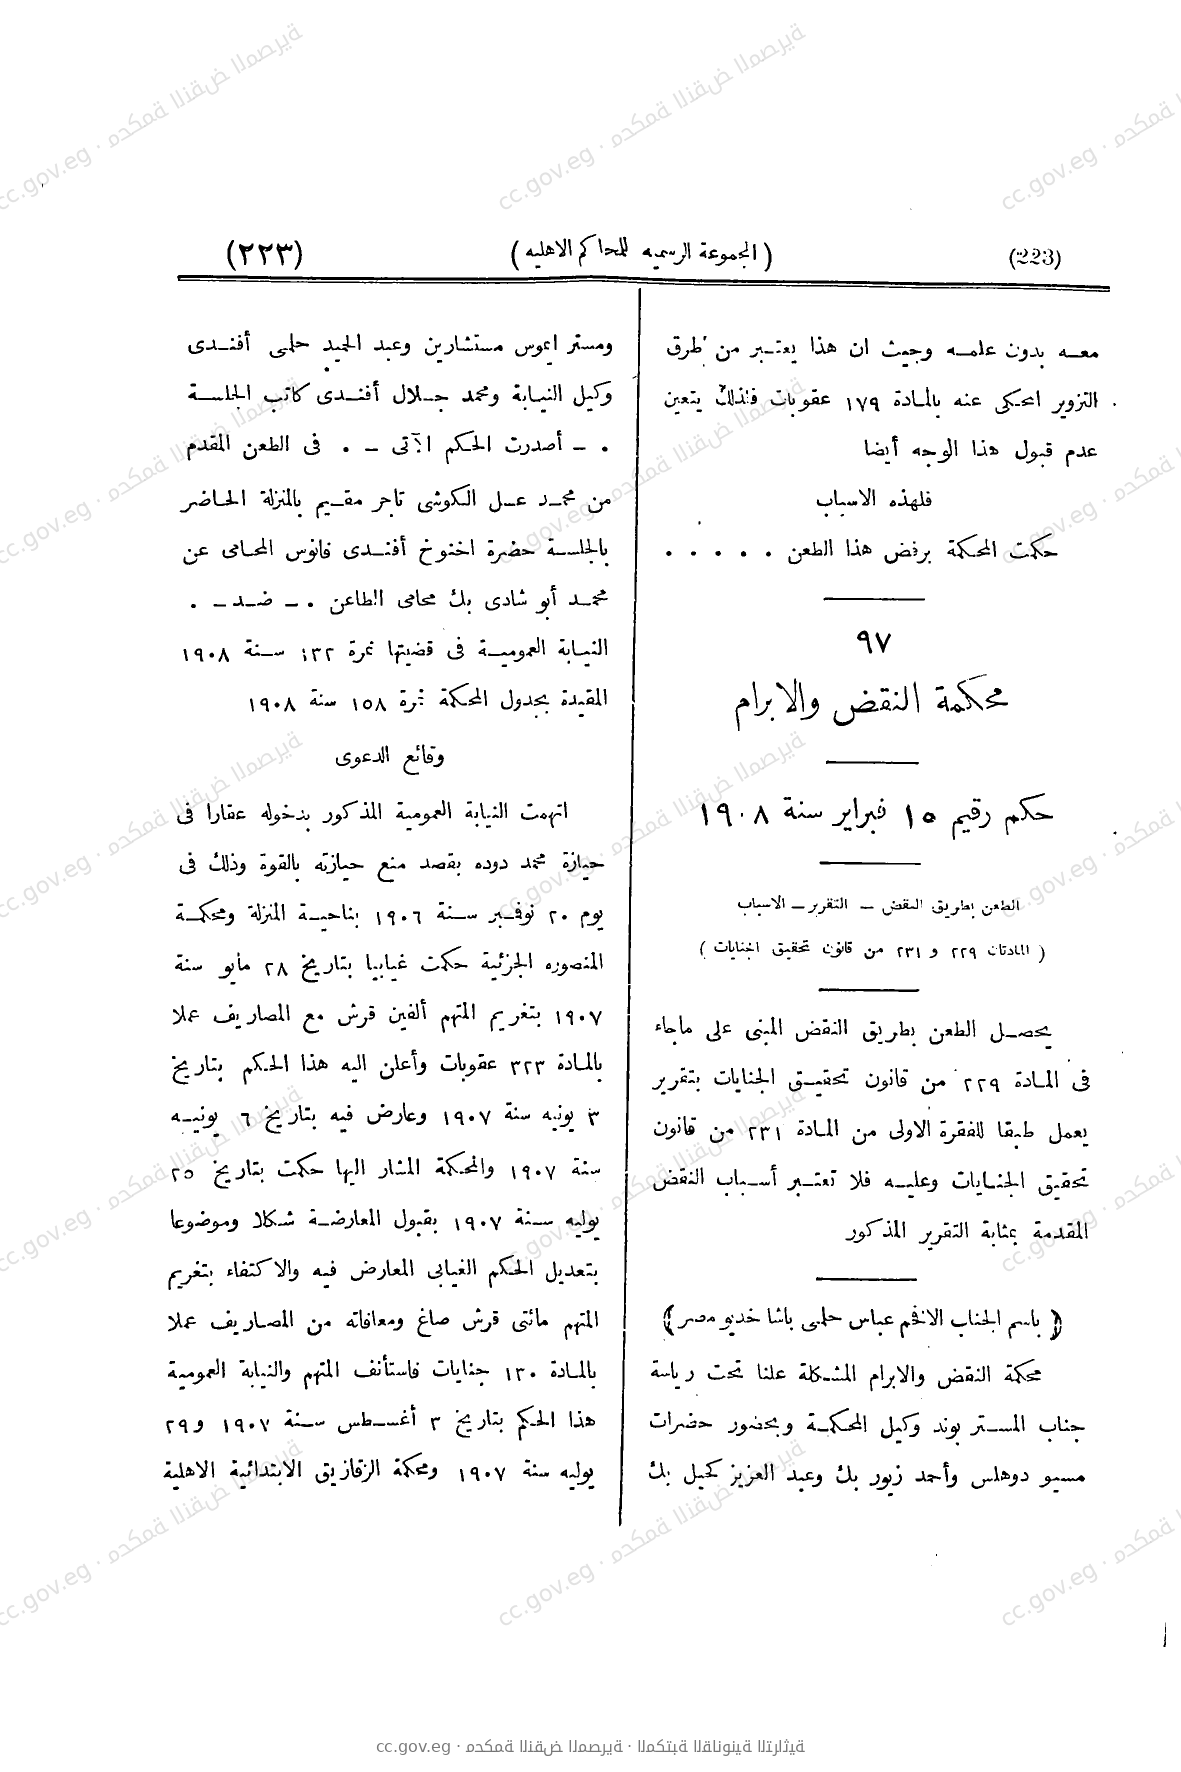 (223) (المجموعة الرسميه للمحاكم الاهليه) (٢٢٣)
معه بدون علمه وحيث ان هذا يعتبر من طرق
التزوير المحكى عنه بالمادة ١٧٩ عقوبات فلذلك يتعين
عدم قبول هذا الوجه أيضا
فلهذه الاسباب
حكمت المحكمة برفض هذا الطعن . . . . .
٩٧
محكمة النقض والابرام
حكم رقيم ١٥ فبراير سنة ١٩٠٨
الطعن بطريق النقض – التقرير – الاسباب
(المادتان ٢٢٩ و ٢٣١ من قانون تحقيق الجنايات)
يحصل الطعن بطريق النقض المبنى على ماجاء
فى المادة ٢٢٩ من قانون تحقيق الجنايات بتقرير
يعمل طبقا للفقرة الاولى من المادة ٢٣١ من قانون
تحقيق الجنايات وعليه فلا تعتبر أسباب النقض
المقدمة بمثابة التقرير المذكور
(باسم الجناب الافخم عباس حلمى باشا خديو مصر)
محكمة النقض والابرام المشكلة علنا تحت رياسة
جناب المستر بوند وكيل المحكمة وبحضور حضرات
مسيو دوهلس وأحمد زيور بك وعبد العزيز كحيل بك
ومستر ايموس مستشارين وعبد المجيد حلمى أفندى
وكيل النيابة ومحمد جلال أفندى كاتب الجلسة
. – أصدرت الحكم الآتى – . فى الطعن المقدم
من محمد عسل الكوشى تاجر مقيم بالمنزلة الحاضر
بالجلسة حضرة اخنوخ أفندى فانوس المحامى عن
محمد أبو شادى بك محامى الطاعن . – ضد – .
النيابة العمومية فى قضيتها نمرة ١٣٢ سنة ١٩٠٨
المقيدة بجدول المحكمة نمرة ١٥٨ سنة ١٩٠٨
وقائع الدعوى
اتهمت النيابة العمومية المذكور بدخوله عقارا فى
حيازة محمد دوده بقصد منع حيازته بالقوة وذلك فى
يوم ٢٠ نوفمبر سنة ١٩٠٦ بناحية المنزلة ومحكمة
المنصوره الجزئية حكمت غيابيا بتاريخ ٢٨ مايو سنة
١٩٠٧ بتغريم المتهم ألفين قرش مع المصاريف عملا
بالمادة ٣٢٣ عقوبات وأعلن اليه هذا الحكم بتاريخ
٣ يونيه سنة ١٩٠٧ وعارض فيه بتاريخ ٦ يونيه
سنة ١٩٠٧ والمحكمة المشار اليها حكمت بتاريخ ٢٥
يوليه سنة ١٩٠٧ بقبول المعارضة شكلا وموضوعا
بتعديل الحكم الغيابى المعارض فيه والاكتفاء بتغريم
المتهم مائتى قرش صاغ ومعافاته من المصاريف عملا
بالمادة ١٣٠ جنايات فاستأنف المتهم والنيابة العمومية
هذا الحكم بتاريخ ٣ أغسطس سنة ١٩٠٧ و٢٩
يوليه سنة ١٩٠٧ ومحكمة الزقازيق الابتدائية الاهلية
cc.gov.eg · محكمة النقض المصرية · المكتبة القانونية التراثية